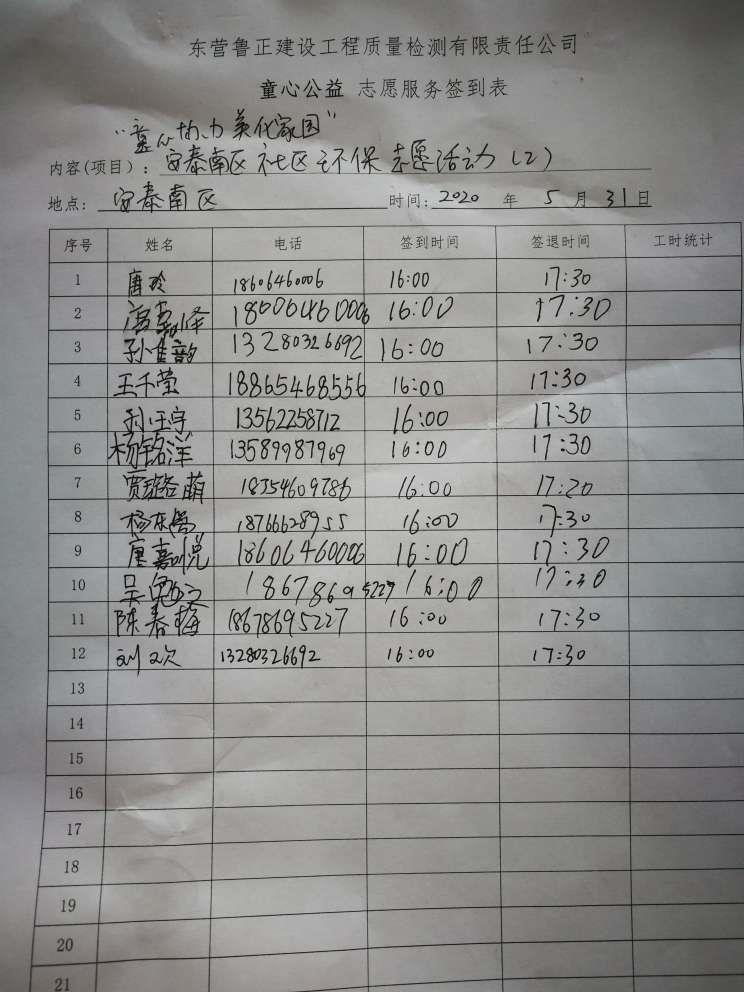 东营鲁正建设工程质量检测有限责任公司
童心公益 志愿服务签到表
"童心协力 美化家园"
内容(项目): 安泰南区 社区 环保 志愿活动 (2)
地点: 安泰南区 时间: 2020 年 5 月 31 日
序号 姓名 电话 签到时间 签退时间 工时统计
1 唐玲 18606460006 16:00 17:30
2 18606460006 16:00 17:30
3 孙佳韵 13280326692 16:00 17:30
4 王千莹 18865468556 16:00 17:30
5 13562258712 16:00 17:30
6 杨铭洋 13589987969 16:00 17:30
7 贾璐萌 18354609786 16:00 17:20
8 杨东 18766628955 16:00 17:30
9 唐嘉悦 18606460006 16:00 17:30
10 吴 18678695227 16:00 17:30
11 陈春梅 18678695227 16:00 17:30
12 刘欢 13280326692 16:00 17:30
13
14
15
16
17
18
19
20
21